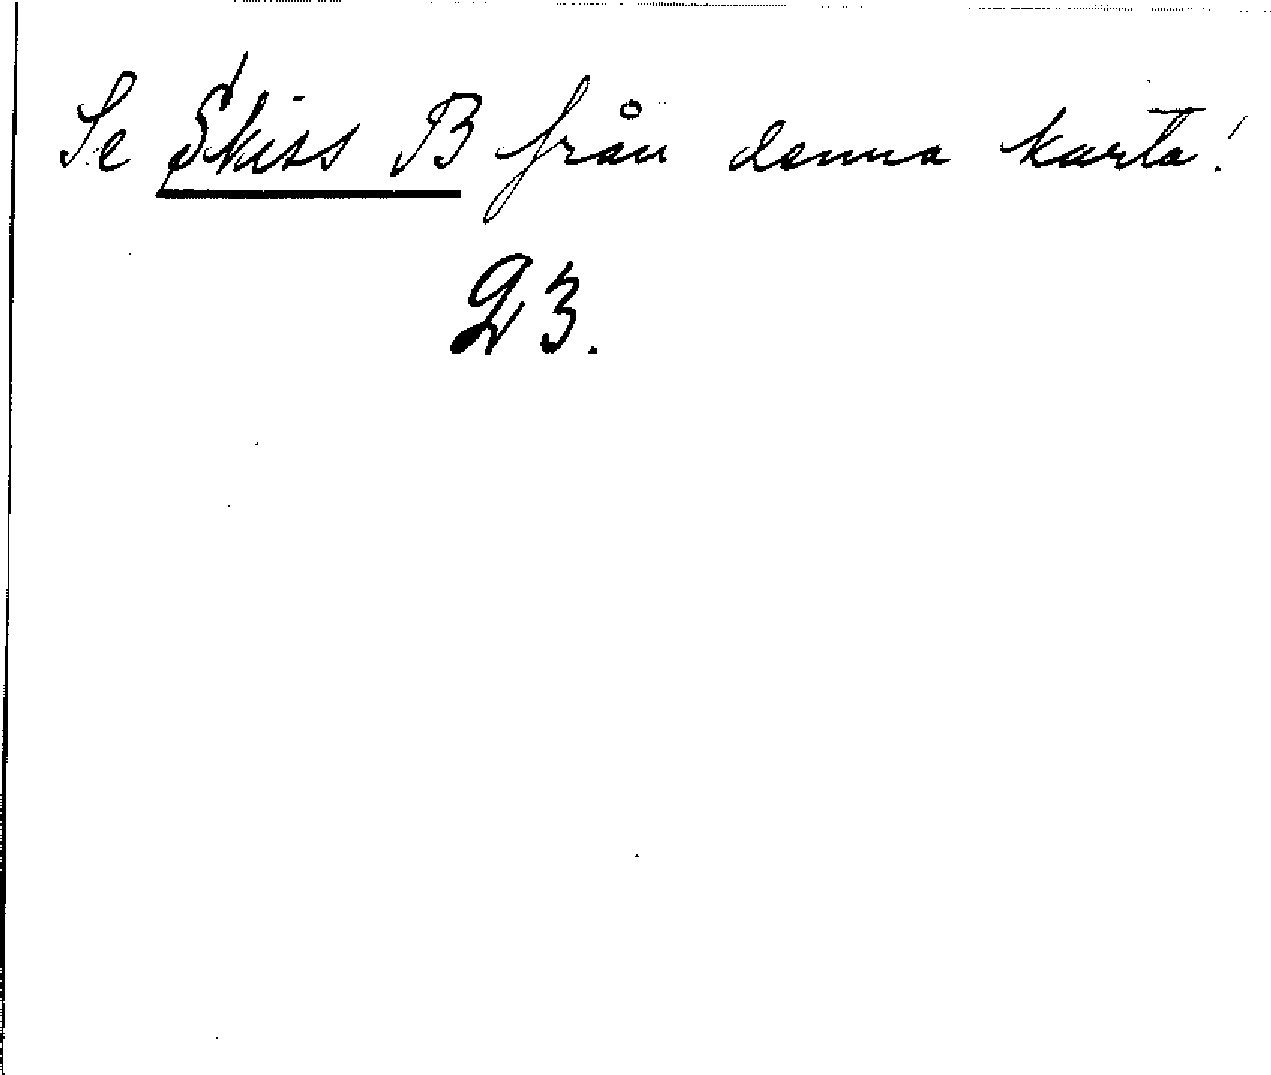 Se Skiss B från denna karta!
23.